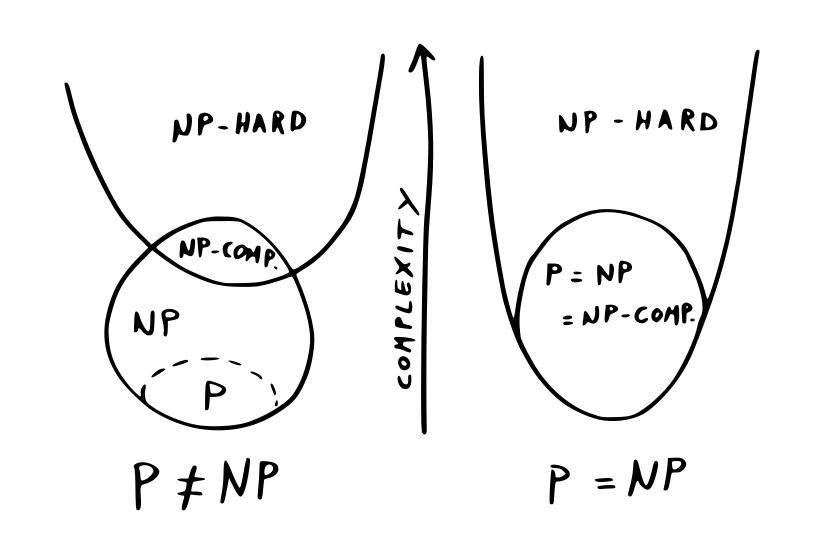 NP-HARD
NP-COMP.
NP
P
P ≠ NP
COMPLEXITY
NP - HARD
P = NP
= NP-COMP.
P = NP